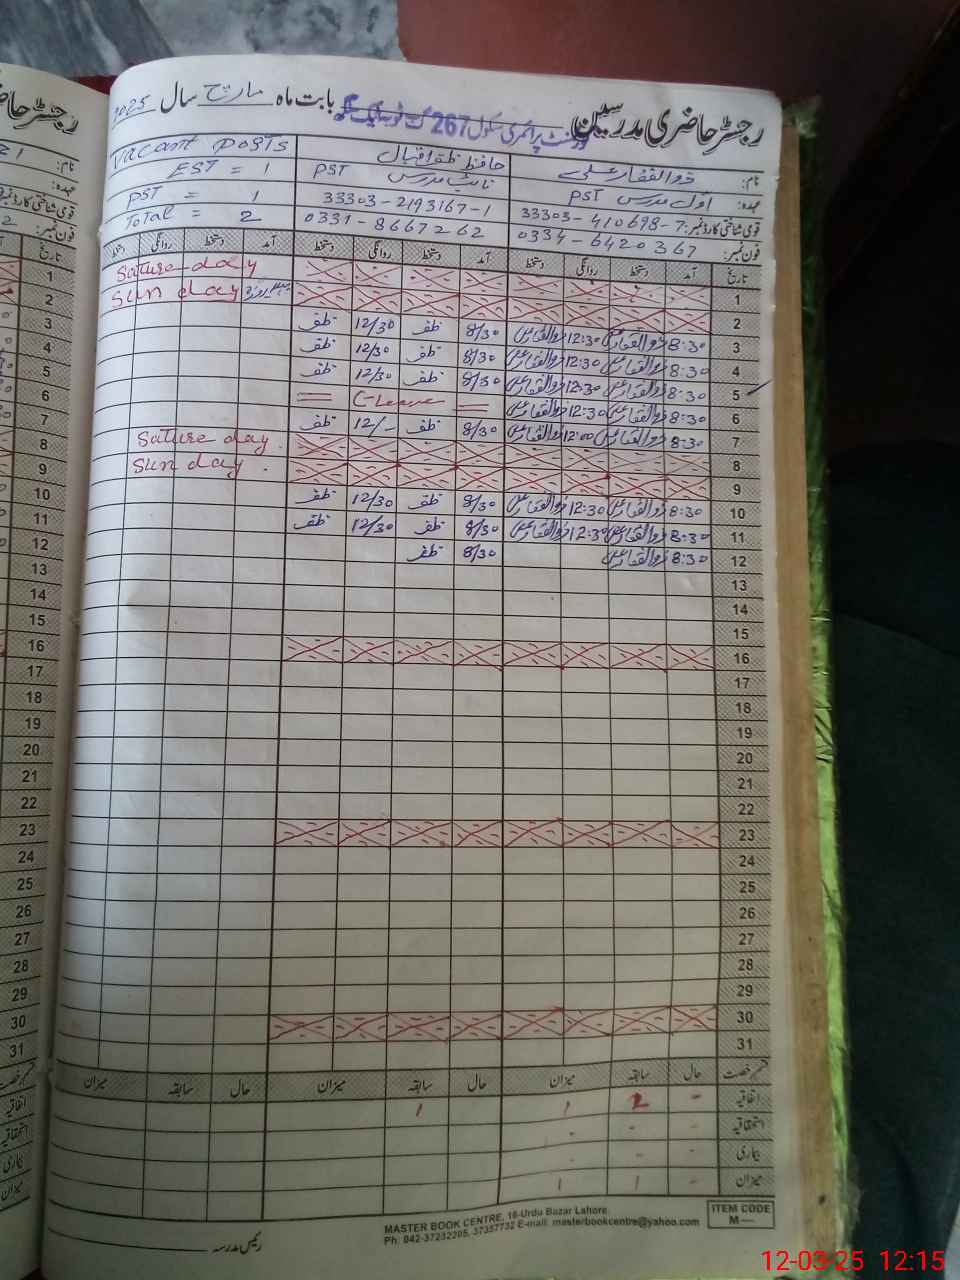 رجسٹر حاضری مدرسین گورنمنٹ پرائمری سکول 267 بابت ماہ مارچ سال 2025
نام: ذوالفقار علی حافظ ظفر اقبال Vacant Posts
عہدہ: اول مدرس PST نائب مدرس PST EST = 1
قومی شناختی کارڈ نمبر: 33303-410698-7 33303-2193167-1 PST = 1
فون نمبر: 0334-6420367 0331-8667262 Total = 2
تاریخ آمد دستخط روانگی دستخط آمد دستخط روانگی دستخط آمد دستخط روانگی دستخط
1 Sature day
2 Sun day
3 8:30 ذوالفقار علی 12:30 ذوالفقار علی 8/30 ظفر 12/30 ظفر
4 8:30 ذوالفقار علی 12:30 ذوالفقار علی 8/30 ظفر 12/30 ظفر
5 8:30 ذوالفقار علی 12:30 ذوالفقار علی 8/30 ظفر 12/30 ظفر
6 8:30 ذوالفقار علی 12:30 ذوالفقار علی = C-Leave =
7 8:30 ذوالفقار علی 12:00 ذوالفقار علی 8/30 ظفر 12/- ظفر
8 Sature day.
9 Sun day.
10 8:30 ذوالفقار علی 12:30 ذوالفقار علی 8/30 ظفر 12/30 ظفر
11 8:30 ذوالفقار علی 12:30 ذوالفقار علی 8/30 ظفر 12/30 ظفر
12 8:30 ذوالفقار علی 8/30 ظفر
13
14
15
16
17
18
19
20
21
22
23
24
25
26
27
28
29
30
31
قسم رخصت حال سابقہ میزان حال سابقہ میزان حال سابقہ میزان
اتفاقیہ - 2 1 1
استحقاقیہ - - -
بیماری - - -
میزان - 1 1
رئیس مدرسہ
MASTER BOOK CENTRE, 16-Urdu Bazar Lahore.
Ph: 042-37232205, 37357732 E-mail: masterbookcentre@yahoo.com
ITEM CODE
M—
12-03-25 12:15